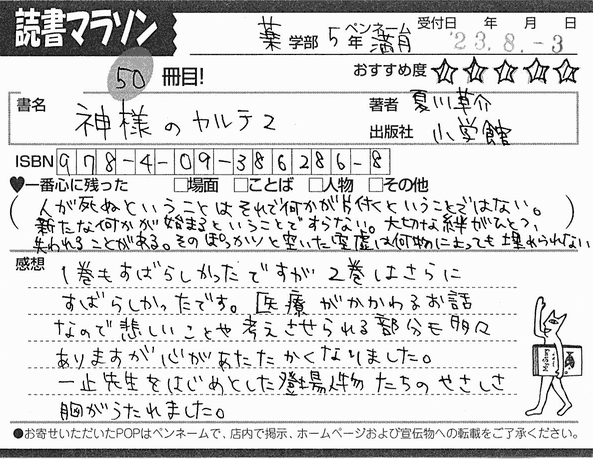 読書マラソン
薬 学部 5年 ペンネーム 満月 受付日 年 月 日
'23.8.-3
50冊目!
おすすめ度 ☆☆☆☆☆
書名 神様のカルテ2
著者 夏川草介
出版社 小学館
ISBN 978-4-09-386286-8
♥一番心に残った □場面 □ことば □人物 □その他
(人が死ぬということはそれで何かが片付くということではない。
新たな何かが始まるということですらない。大切な絆がひとつ、
失われることがある。そのぽっかりと空いた空虚は何物によっても埋められない)
感想
1巻もすばらしかったですが2巻はさらに
すばらしかったです。医療がかかわるお話
なので悲しいことや考えさせられる部分も多々
ありますが心があたたかくなりました。
一止先生をはじめとした登場人物たちのやさしさ
胸がうたれました。
●お寄せいただいたPOPはペンネームで、店内で掲示、ホームページおよび宣伝物への転載をご了承ください。